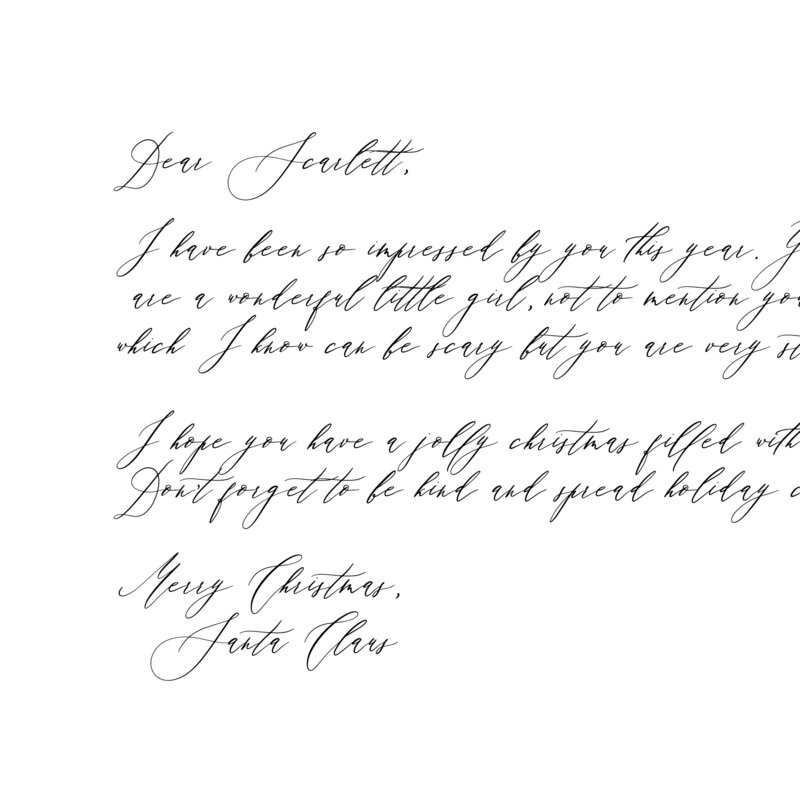 Dear Scarlett,
I have been so impressed by you this year. Y
are a wonderful little girl, not to mention you
which I know can be scary but you are very st
I hope you have a jolly christmas filled with
Don't forget to be kind and spread holiday c
Merry Christmas,
Santa Claus